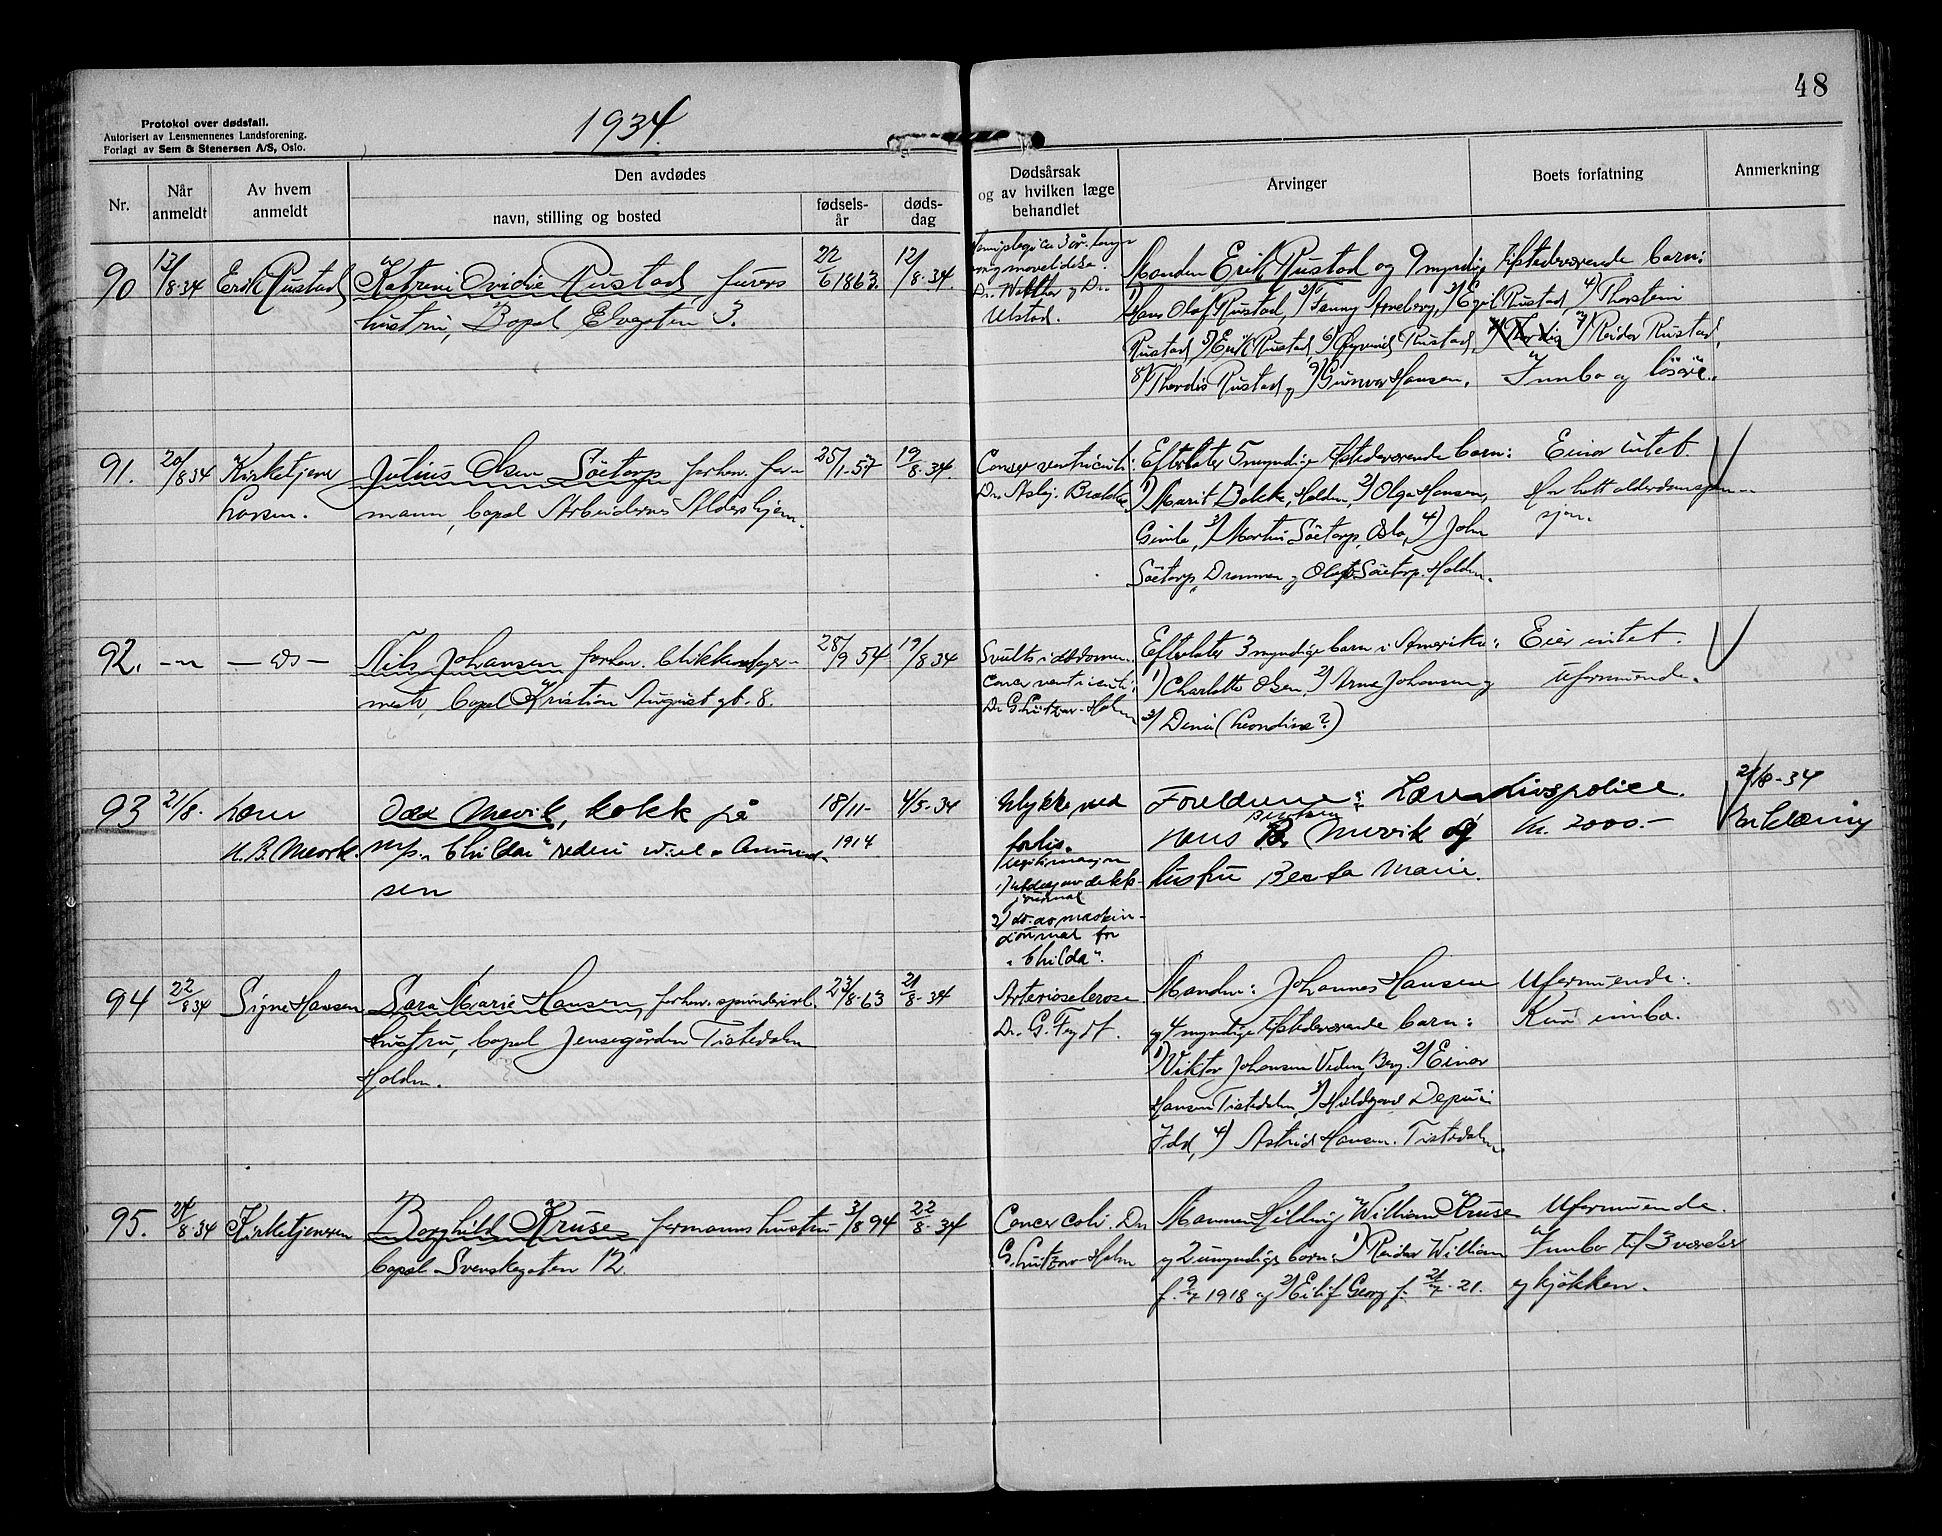 48
Protokol over dødsfall.
Autorisert av Lensmennenes Landsforening.
Forlagt av Sem & Stenersen A/S, Oslo.
1934.
Nr.
Når anmeldt
Av hvem anmeldt
Den avdødes
navn, stilling og bosted
fødsels-år
døds-dag
Dødsårsak og av hvilken læge behandlet
Arvinger
Boets forfatning
Anmerkning
90 13/8-34 Erik Rustad Katrine Ovidie Rustad, 22/6 1863. 12/8-34.
hustru, Bopel Elvegaten 3.
Dr. Ulstad.
Manden Erik Rustad og 9 myndige tilstedeværende barn:
1) Hans Olaf Rustad, 2) Fanny Arneberg, 3) Egil Rustad, 4) Thorstein
Rustad, 5) Erik Rustad, 6) Øyvind Rustad, 7) Reidar Rustad,
8) Thordis Rustad og 9) Gunvor Hansen. Innbo og løsøre.
91. 20/8 34 Kirketjener Larsen. Julius Olsen Sæetorp forhen. for-
mann, bopel Arbeidernes Aldershjem. 25/1-57 19/8-34.
Cancer ventriculi:
Dr. Asbj. Brække.
Efterlater 5 myndige tilstedeværende barn:
1) Marit Bakke, Halden, 2) Olga Hansen,
Gimle, 3) Martin Sæetorp, Oslo, 4) John
Sæetorp, Drammen og Olaf Sæetorp. Halden.
Eier intet.
Har hatt alderdomspen-
sjon.
92. -"- - do - Nils Johansen forhen. blikkenslager-
mestr, bopel Kristian August gt. 8. 28/9 54 19/8 34
cancer ventriculi:
Dr. G. Lützow-Holm
Efterlater 3 myndige barn i Amerika:
1) Charlotte Olsen, 2) Arne Johansen og
3) Dina (Leondine?)
Eier intet.
Uformuende.
93 21/8. Lærer H. B. Mevik. Odd Mevik, kokk på
m/s. "Childar" rederi Wiel & Amund-
sen 18/11-1914 4/5-34
Ulykke ved
forlis.
Legitimasjon
1) utdrag av dekk-
journal
2) do. av maskin-
journal for
"Childar".
Foreldrene: Lærer
Hans Berntsen Mevik og
hustru Berta Marie.
Livspolice
Kr. 2000.-
21/8-34
Erklæring
94 22/8 34 Signe Hansen Sara Marie Hansen, forhen. spinderiarb.
hustru, bopel Jensegården Tistedalen
Halden. 23/8-63 21/8-34
Arteriosclerose
Dr. G. Frydt.
Manden: Johannes Hansen
og 4 myndige tilstedeværende barn:
1) Viktor Johansen Veden, Berg. 2) Einar
Hansen Tistedalen, 3) Hildegard Depuis
Idd, 4) Astrid Hansen. Tistedalen.
Uformuende:
Kun innbo.
95. 24/8-34 Kirketjeneren Borghild Kruse formanns hustru
bopel Svenskegaten 12. 3/8 94 22/8-34
Cancer coli. Dr.
G. Lützow-Holm
Mannen Hilding William Kruse
og 2 umyndige barn: 1) Reidar William
f. 9/7 1918 og 2) Eilif Georg f. 21/7-21.
Uformuende.
Innbo til 3 værelser
og kjøkken.